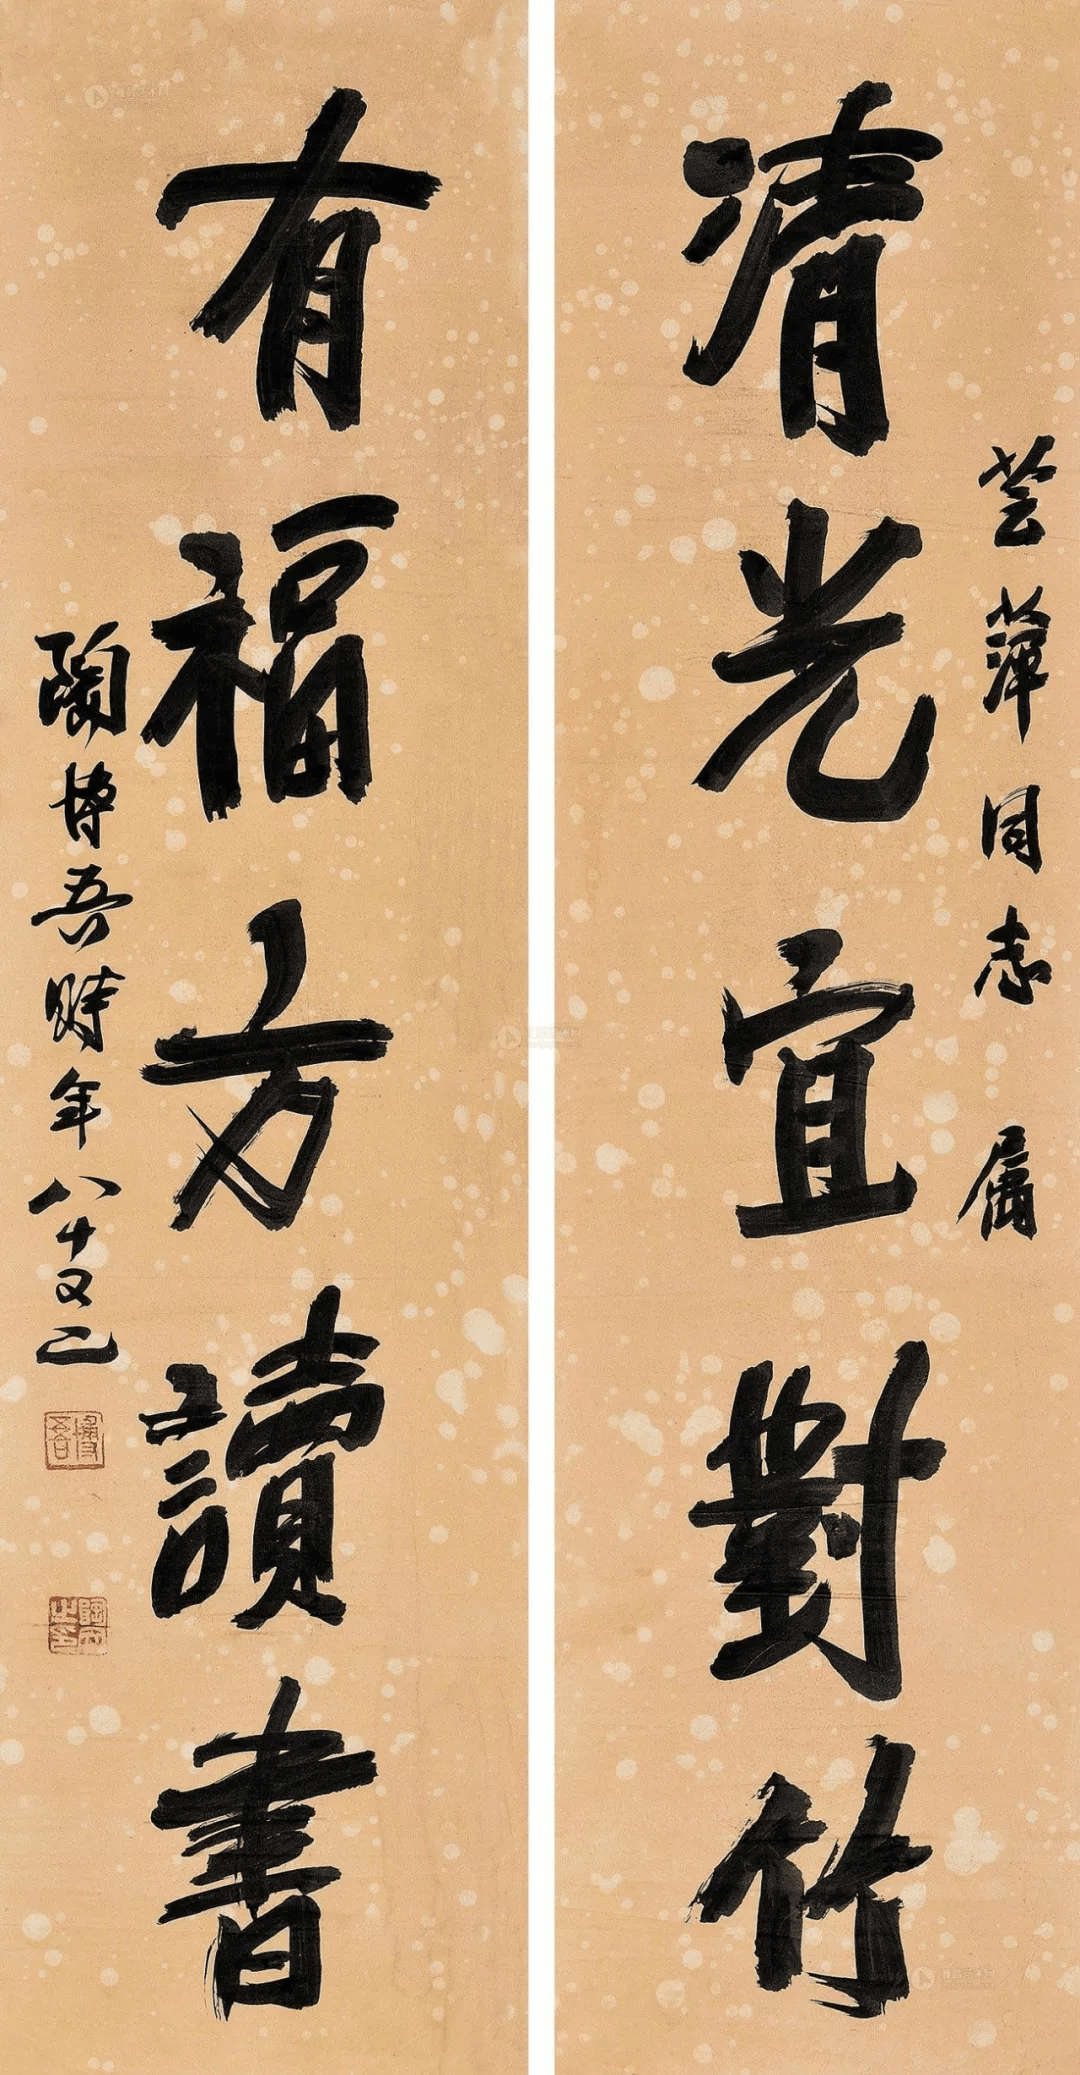 清光宜對竹
芸萍同志 属
有福方讀書
陶博吾時年八十又二
博吾